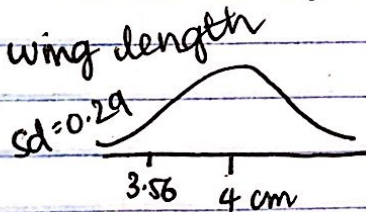 wing length
sd=0.29
3.56 4 cm